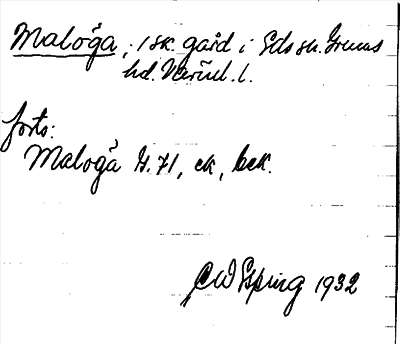 Maloga, 1 sk. gård i Eds sn. Grums
hd. Värml. l.
forts:
Maloga G. 71, ek, bek.
CW Spring 1932